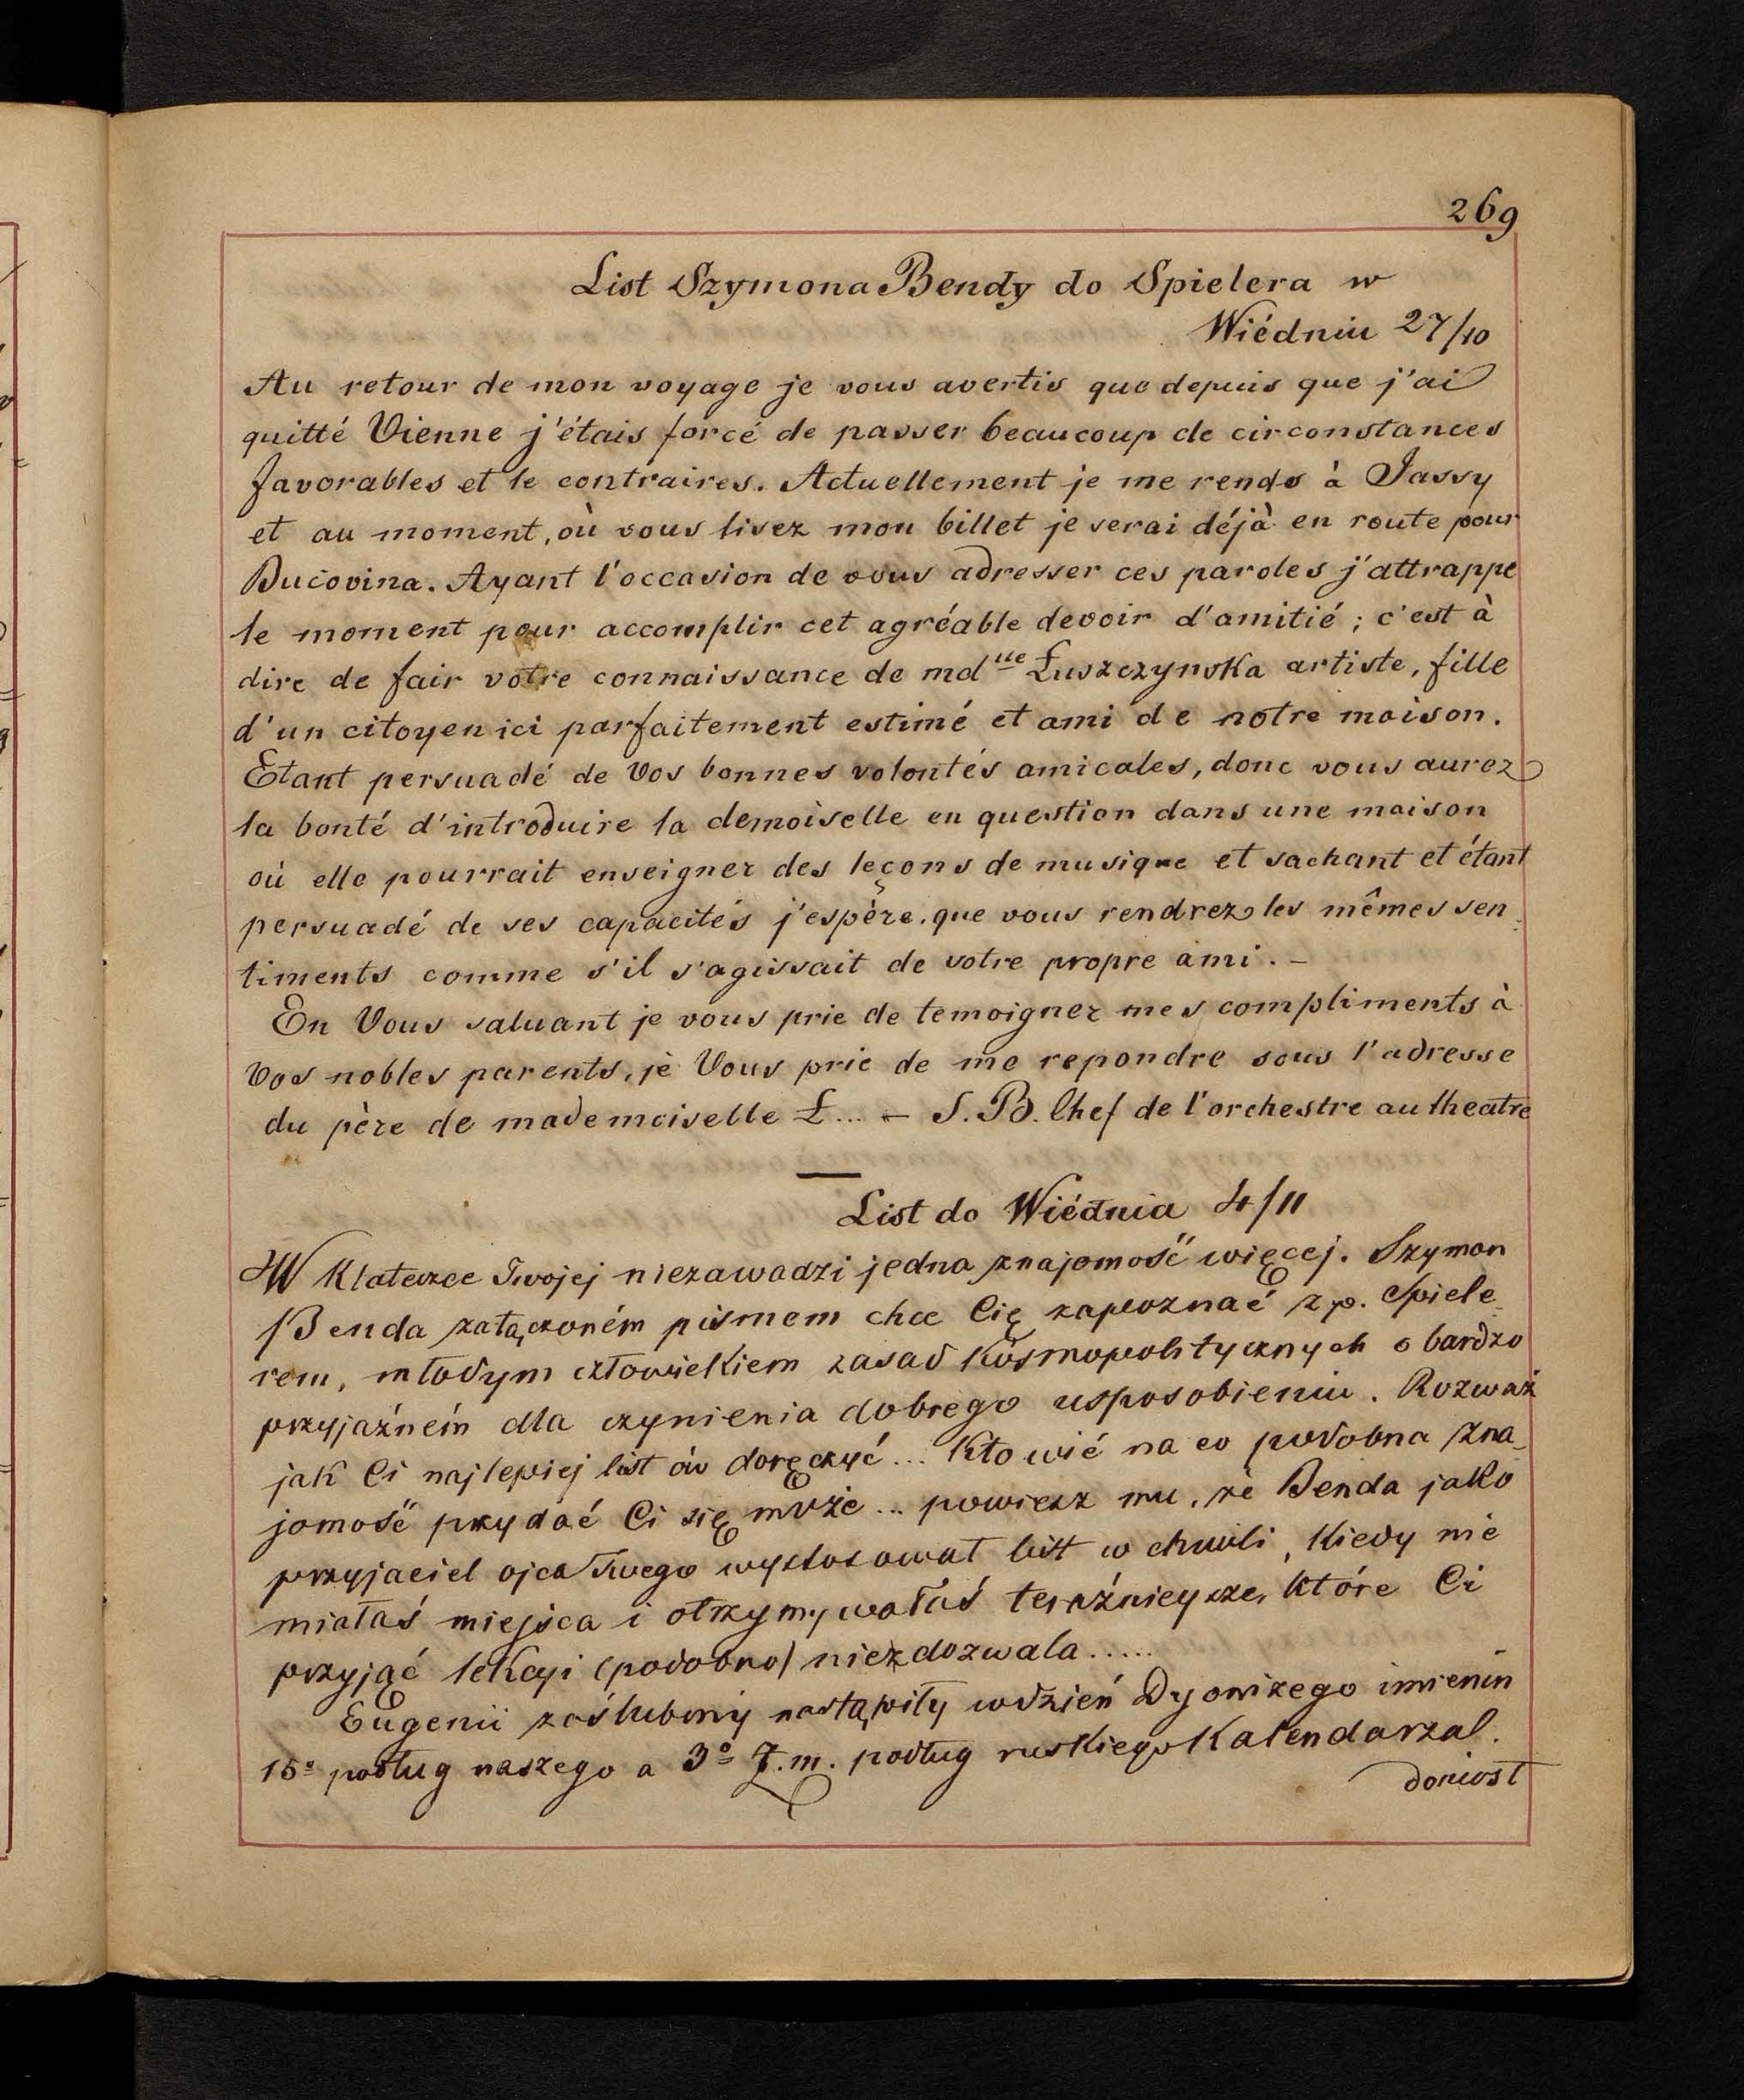 269
List Szymona Bendy do Spielera w
Wiédniu 27/10
Au retour de mon voyage je vous avertis que depuis que j'ai
quitté Vienne j'étais forcé de passer beaucoup de circonstances
favorables et le contraires. Actuellement je me rends à Jassy
et au moment, où vous lisez mon billet je serai déjà en route pour
Bucovina. Ayant l'occasion de vous adresser ces paroles j'attrappe
le moment pour accomplir cet agréable devoir d'amitié; c'est à
dire de fair votre connaissance de mdlle Łuszczynska artiste, fille
d'un citoyen ici parfaitement estimé et ami de notre maison.
Etant persuadé de Vos bonnes volontés amicales, donc vous aurez
la bonté d'introduire la demoiselle en question dans une maison
où elle pourrait enseigner des leçons de musique et sachant et étant
persuadé de ses capacités j'espère, que vous rendrez les mêmes sen-
timents comme s'il s'agissait de votre propre ami. –
En Vous saluant je vous prie de temoigner mes compliments à
Vos nobles parents, je Vous prie de me repondre sous l'adresse
du père de mademoiselle Ł... – S. B. Chef de l'orchestre au theatre
List do Wiédnia 4/11
W Klateczce Twojej niezawadzi jedna znajomość więcej. Szymon
Benda załączoném pismem chce Cię zapoznać z p. Spiele-
rem, młodym człowiekiem zasad Kosmopolitycznych o bardzo
przyjaźném dla czynienia dobrego usposobieniu. Rozważ
jak Ci najlepiej list ów doręczyć... Kto wié na co podobna zna-
jomość przydać Ci się może... powiesz mu, że Benda jako
przyjaciel ojca Twego wystosował list w chwili, Kiedy nie
miałaś miejsca i otrzymywałaś teraźniejsze, które Ci
przyjąć lekcyi (podobno) niezdozwala.....
Eugenii zaślubiny nastąpiły w dzień Dyonizego imienin
15º podług naszego a 3º T. m. podług ruskiego Kalendarza.
doniosł